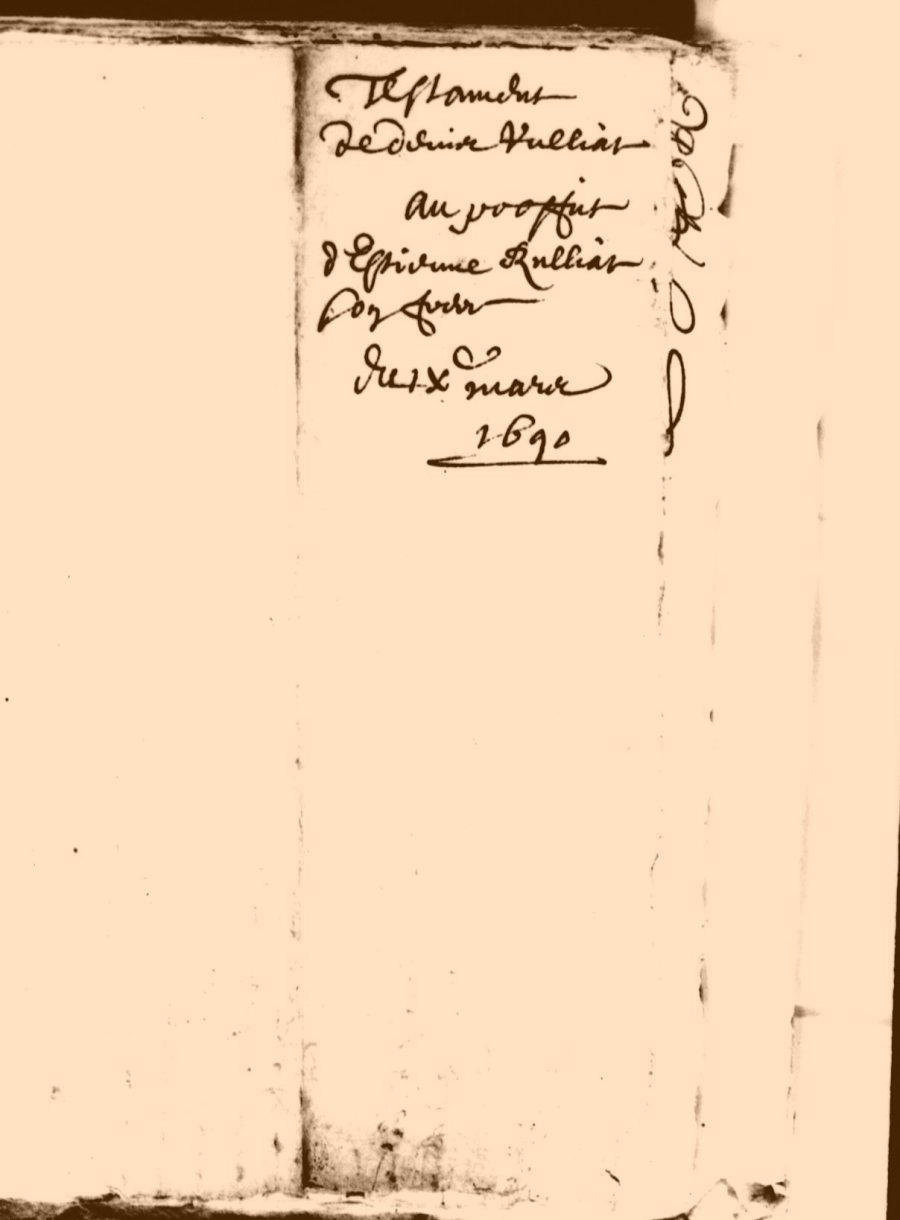 Testament
de denise Rulliat
au proffit
d'Estienne Rulliat
son frere
du ix^e mars
1690